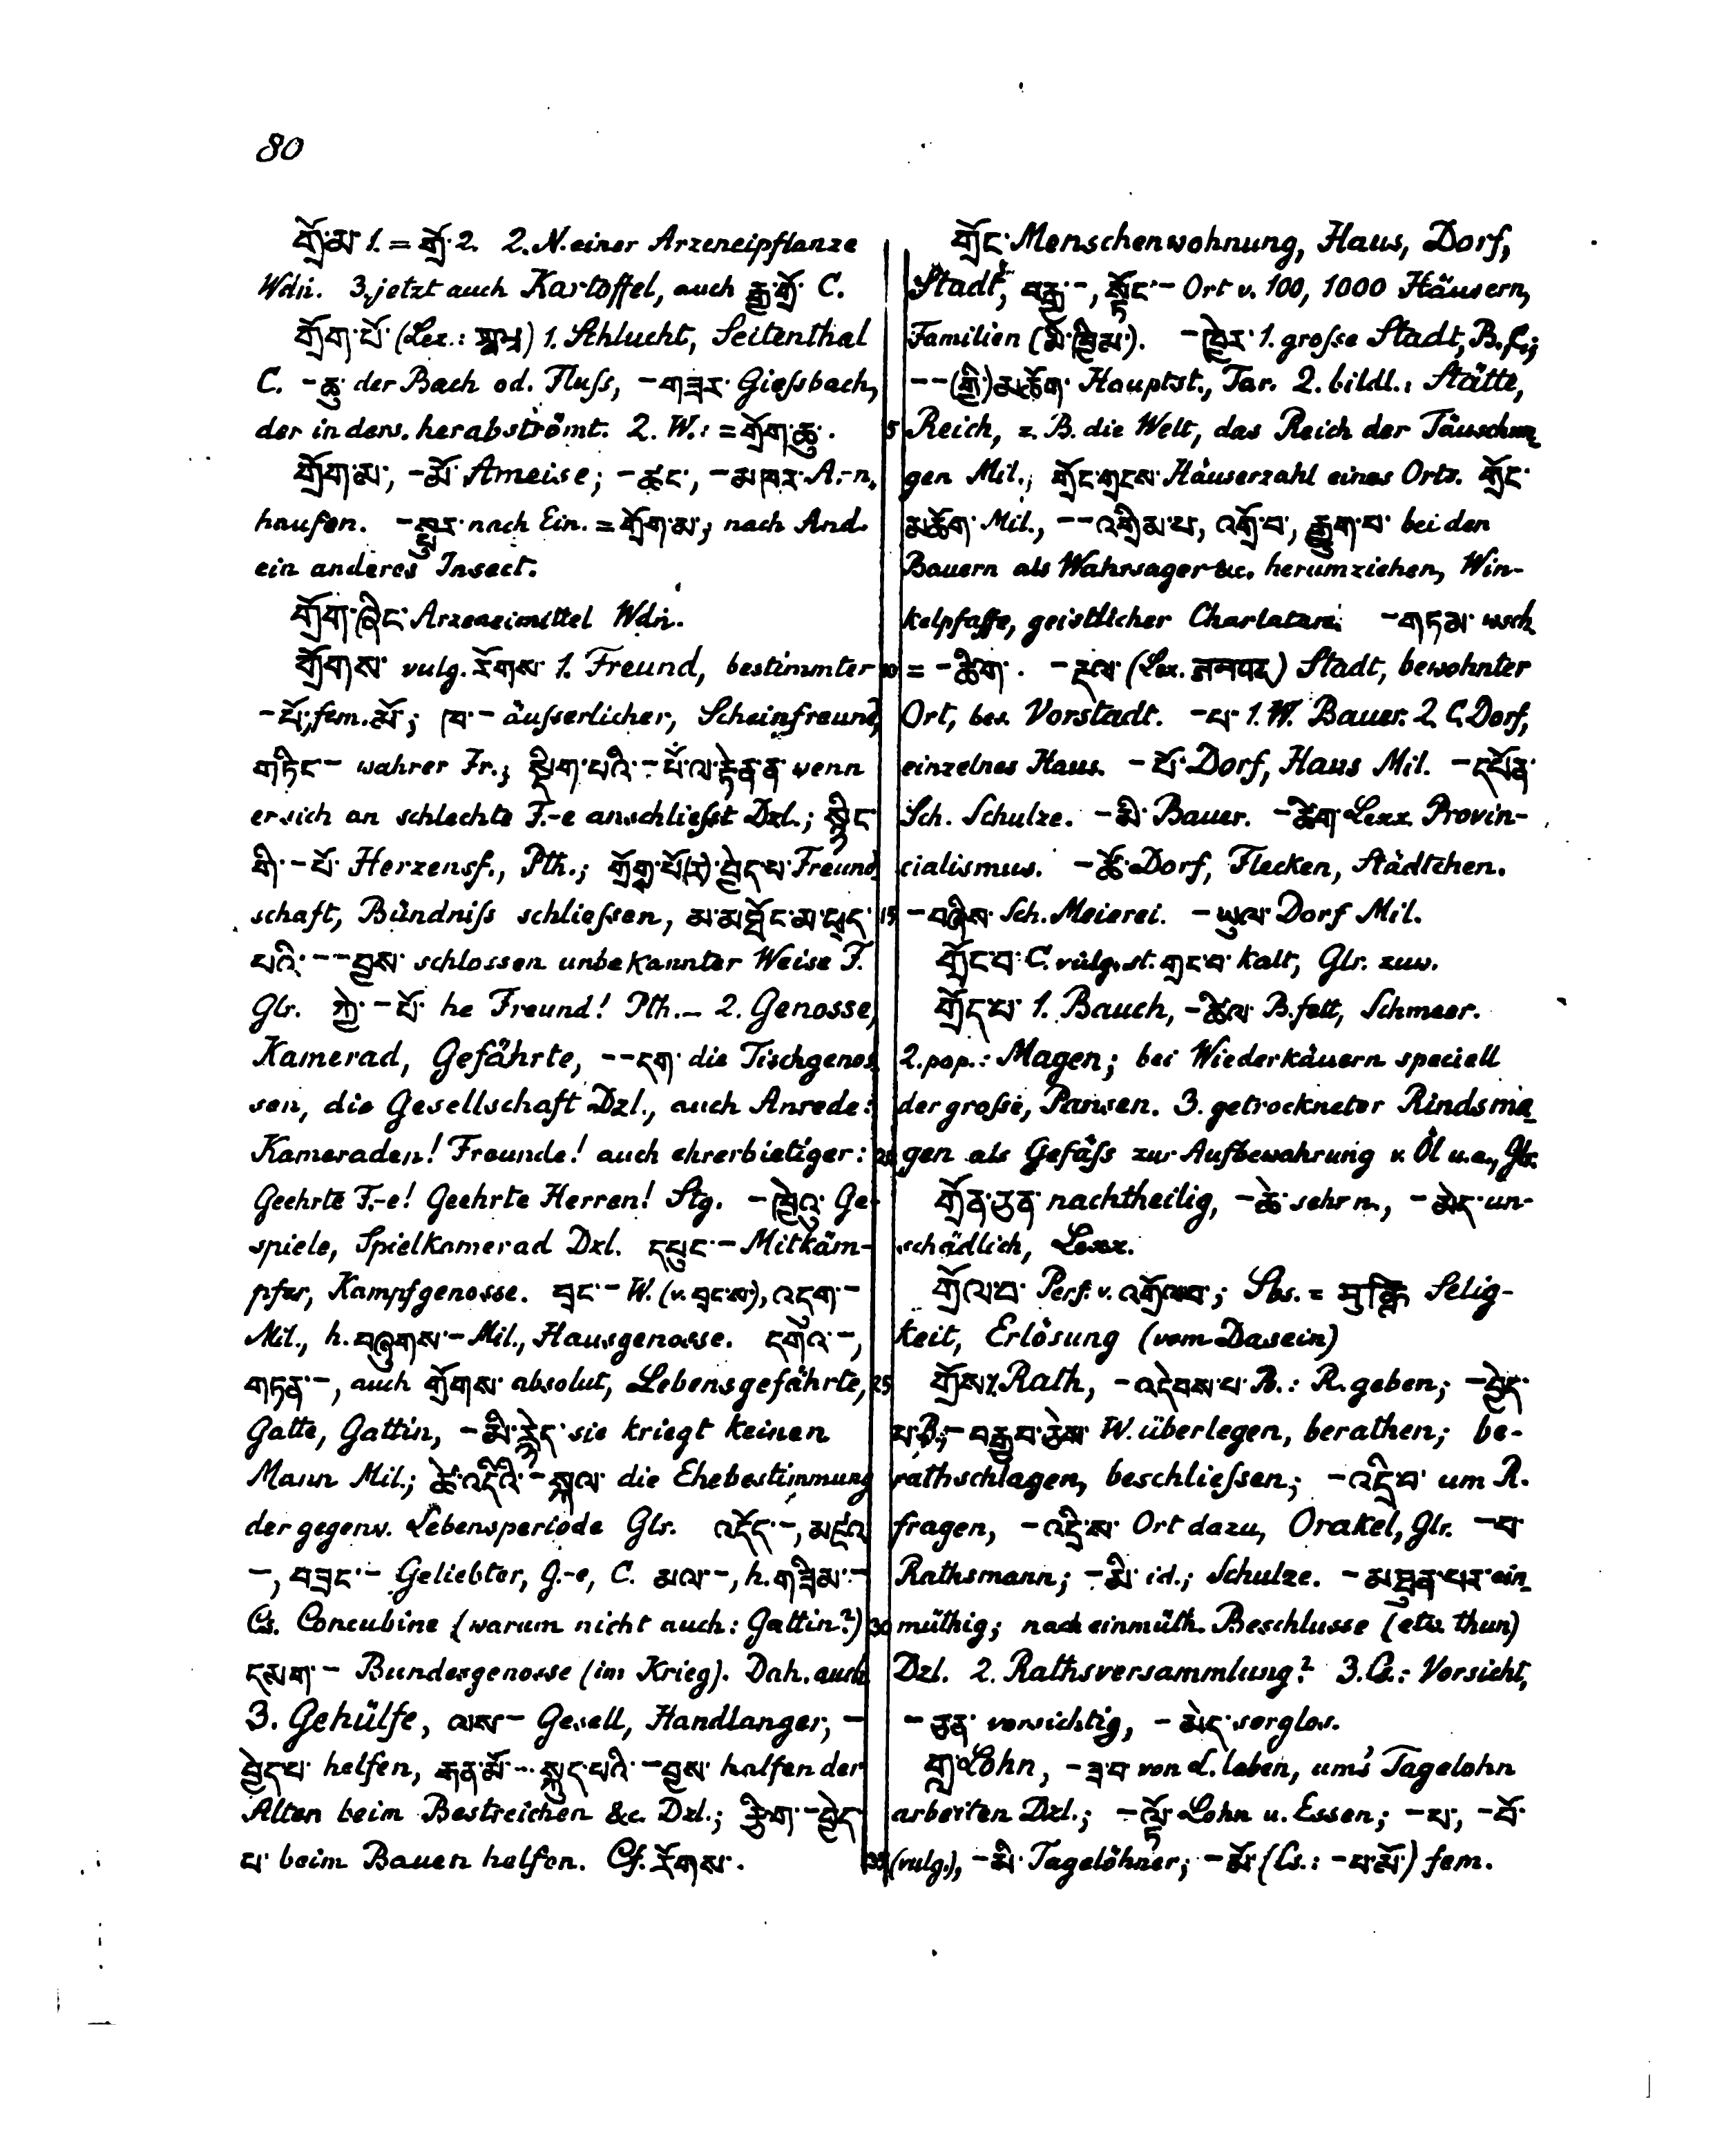 80
གྲོ་མ་ 1. = གྲོ་ 2. 2. N. einer Arzeneipflanze
Wdṅ. 3. jetzt auch Kartoffel, auch རྒྱ་གྲོ་ C.
གྲོག་པོ་ (Lex.: ) 1. Schlucht, Seitenthal
C. -ཆུ་ der Bach od. Fluſs, -གཟར་ Gieſsbach,
der in ders. herabströmt. 2. W.: = གྲོག་ཆུ་.
གྲོག་མ་, -མོ་ Ameise; -ཚང་, -མཁར་ A.-n.
haufen. -སྦུར་ nach Ein. = གྲོག་མ་; nach And.
ein anderes Insect.
གྲོག་ཞིང་ Arzeneimittel Wdṅ.
གྲོགས་ vulg. རོགས་ 1. Freund, bestimmter
-པོ་, fem. མོ་; ཁ་- äuſserlicher, Scheinfreund,
གཏིང་- wahrer Fr.; སྡིག་པའི་-པོ་ལ་རྟེན་ན་ wenn
er sich an schlechte F.-e anschlieſst Dzl.; སྙིང་
གི་-པོ་ Herzensf., Pth.; གྲོགས་པོ་(རེ)་བྱེད་པ་ Freund
schaft, Bündniſs schlieſsen, མ་མཐོང་མ་ཕྲད་
པའི་--བྱས་ schlossen unbekannter Weise F.
Glr. ཀྱེ་-པོ་ he Freund! Pth. – 2. Genosse,
Kamerad, Gefährte, --དག་ die Tischgenos
sen, die Gesellschaft Dzl., auch Anrede:
Kameraden! Freunde! auch ehrerbietiger:
Geehrte F.-e! Geehrte Herren! Stg. -ཁྱེའུ་ Ge-
spiele, Spielkamerad Dzl. དཔུང་- Mitkäm-
pfer, Kampfgenosse. བྲང་- W. (v. བྲང་ས་), འདུག་-
Mil., h. བཞུགས་- Mil., Hausgenosse. དགའ་-,
གཏན་-, auch གྲོགས་ absolut, Lebensgefährte,
Gatte, Gattin, -མི་རྙེད་ sie kriegt keinen
Mann Mil.; ཚེ་འདིའི་-སྐལ་ die Ehebestimmung
der gegenw. Lebensperiode Glr. འདོད་-, མཛའ
-, བཟང་- Geliebter, G.-e, C. མལ་-, h. གཟིམ་-
Cs. Concubine (warum nicht auch: Gattin?)
དམག་- Bundesgenosse (im Krieg). Dah. auch
3. Gehülfe, ལས་- Gesell, Handlanger, -
བྱེད་པ་ helfen, རྒན་མོ་... སྐུད་པའི་-བྱས་ halfen der
Alten beim Bestreichen &c. Dzl.; རྩིག་-བྱེད
པ་ beim Bauen helfen. Cf. རོགས་.
གྲོང་ Menschenwohnung, Haus, Dorf,
Stadt, བརྒྱ་-, སྟོང་- Ort v. 100, 1000 Häusern,
Familien (མི་ཁྱིམ་). -ཁྱེར་ 1. groſse Stadt, B. C.;
--(གྱི་)མཆོག་ Hauptst., Tar. 2. bildl.: Stätte,
5 Reich, z. B. die Welt, das Reich der Täuschun
gen Mil.; གྲོང་གྲངས་ Häuserzahl eines Orts. གྲོང་
མཆོག་ Mil., --འགྲིམ་པ་, འགྲོ་བ་, རྒྱུག་པ་ bei den
Bauern als Wahrsager &c. herumziehen, Win-
kelpfaffe, geistlicher Charlatan. -གཏམ་ wsch
= -ཚིག་. -རྡལ་ (Lex. जनपद) Stadt, bewohnter
Ort, bes. Vorstadt. -པ་ 1. W. Bauer. 2. C. Dorf,
einzelnes Haus. -པོ་ Dorf, Haus Mil. -དཔོན་
Sch. Schulze. -མི་ Bauer. -ཚིག་ Lexx. Provin-
cialismus. -ཚོ་ Dorf, Flecken, Städtchen.
15 -བཞིས་ Sch. Meierei. -ཡུལ་ Dorf Mil.
གྲོང་བ་ C. vulg. st. གྲང་བ་ kalt, Glr. zuw.
གྲོད་པ་ 1. Bauch, -ཚིལ་ B.fett, Schmeer.
2. pop.: Magen; bei Wiederkäuern speciell
der groſse, Pansen. 3. getrockneter Rindsma
20 gen als Gefäſs zur Aufbewahrung v. Öl u. a., Glr.
གྲོན་ཅན་ nachtheilig, -ཆེ་ sehr n., -མེད་ un-
schädlich, Lexx.
གྲོལ་བ་ Perf. v. འགྲོལ་བ་; Sbs. = मुक्ति Selig-
keit, Erlösung (vom Dasein)
25 གྲོས་ 1. Rath, -འདེབས་པ་ B.: R. geben; -བྱེད་
པ་ B.; -བརྒྱབ་ཅེས་ W. überlegen, berathen; be-
rathschlagen, beschlieſsen; -འདྲི་བ་ um R.
fragen, -འདྲི་ས་ Ort dazu, Orakel, Glr. -པ་
Rathsmann; -མི་ id.; Schulze. -མཐུན་པར་ ein
30 müthig; nach einmüth. Beschlusse (etw. thun)
Dzl. 2. Rathsversammlung? 3. Cs.: Vorsicht,
-ཅན་ vorsichtig, -མེད་ sorglos.
གླ་ Lohn, -ཟ་བ་ von L. leben, um's Tagelohn
arbeiten Dzl.; -ལྟོ་ Lohn u. Essen; -པ་, -བོ་
35 (vulg.), -མི་ Tagelöhner; -མོ་ (Cs.: -པ་མོ་) fem.